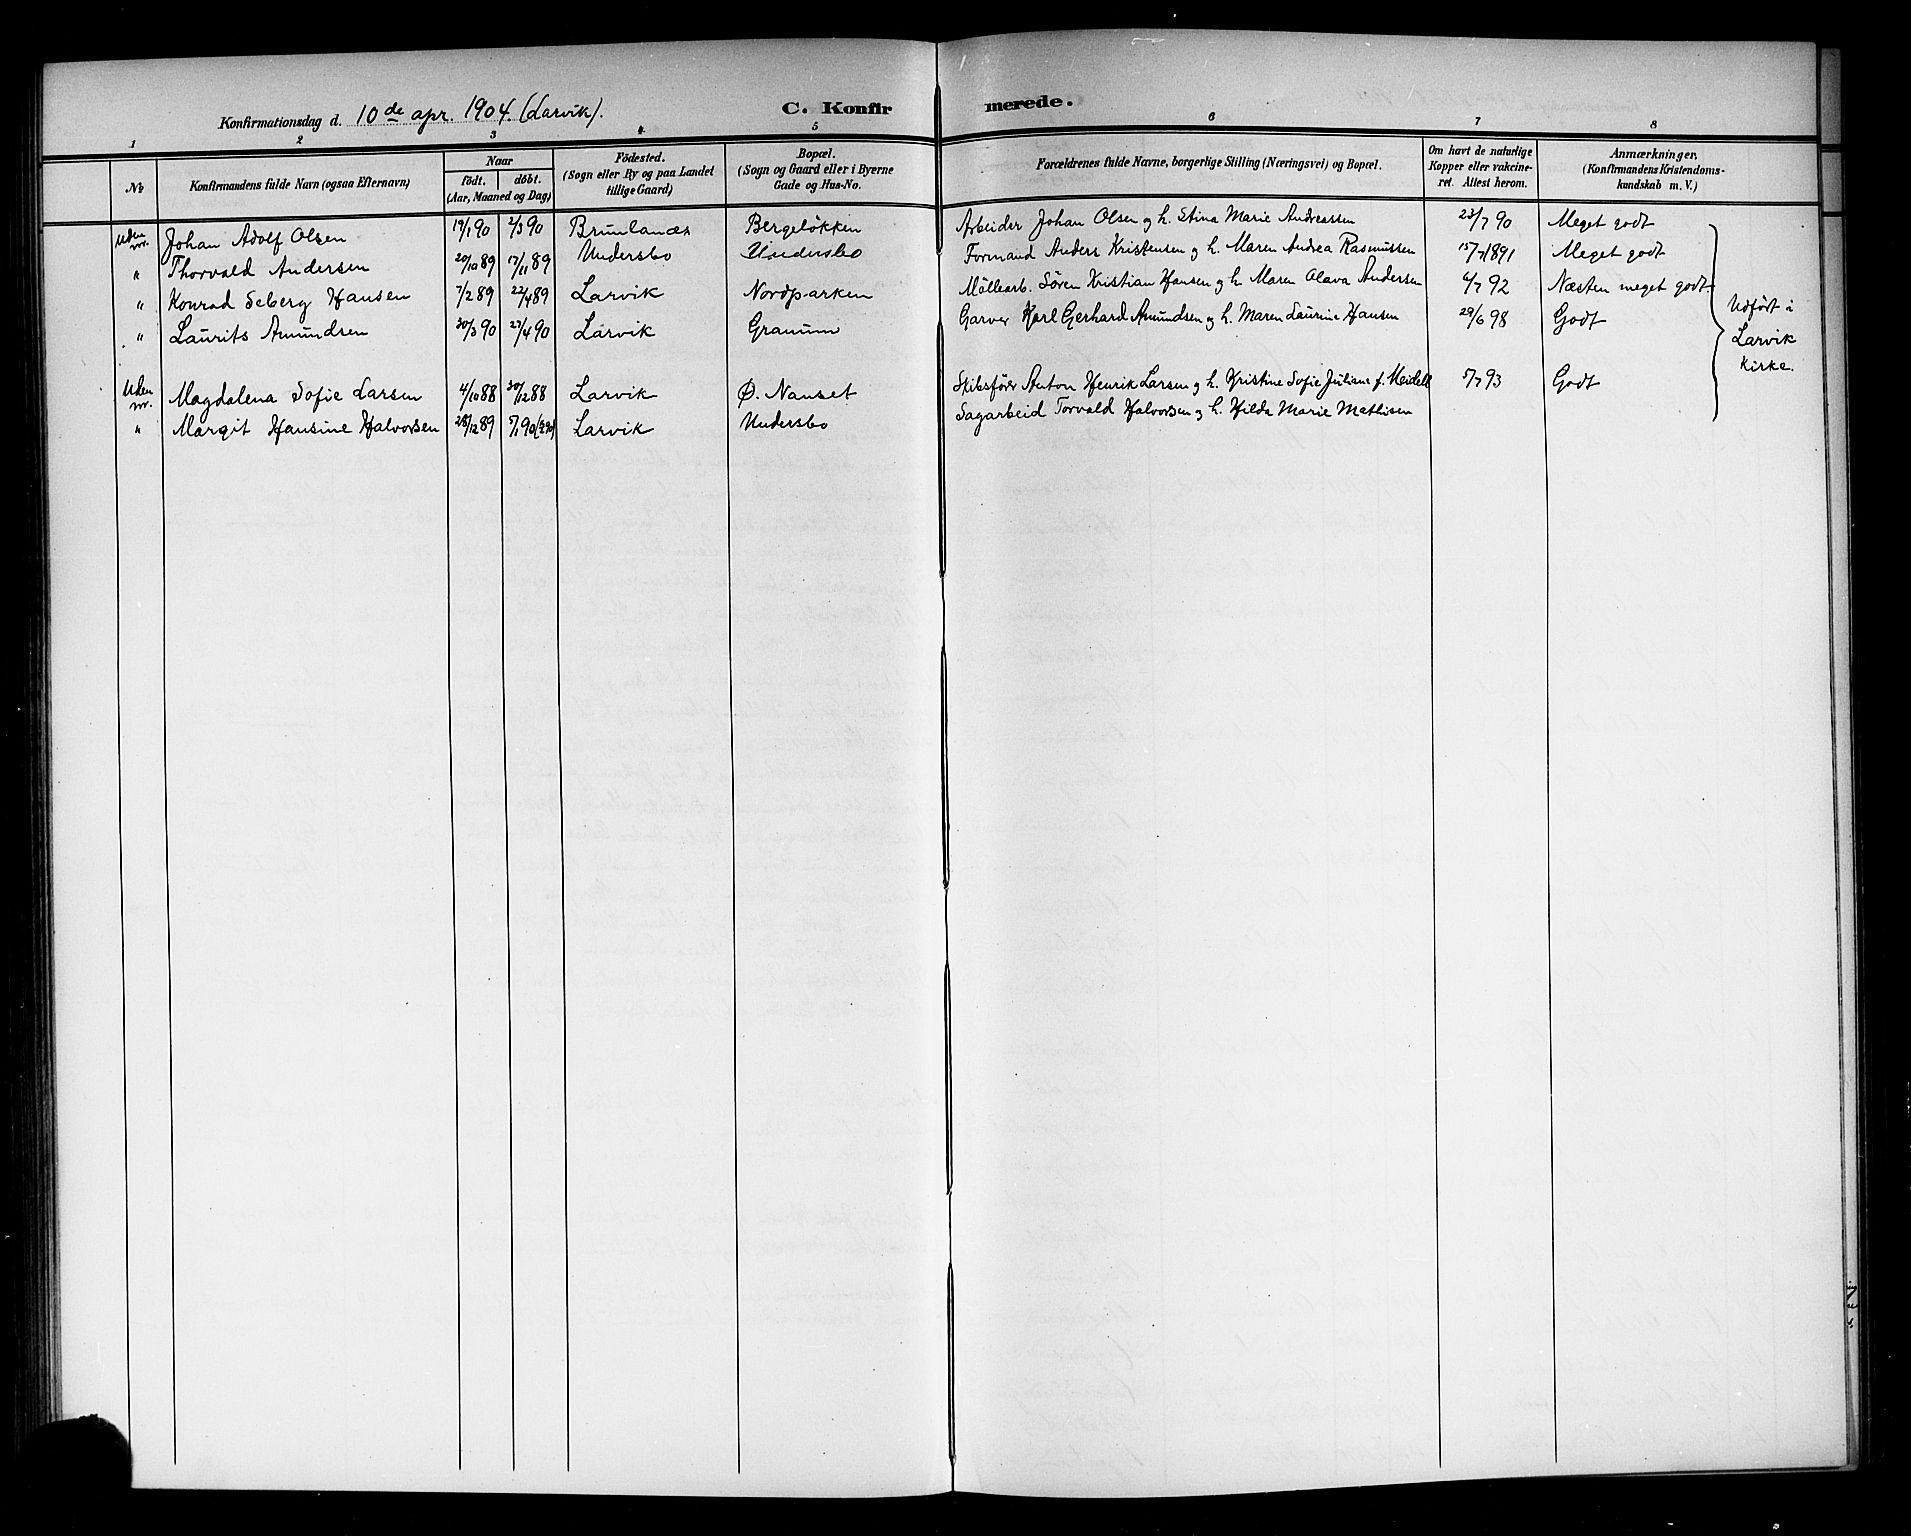 Konfirmationsdag d. 10de apr. 1904. (Larvik). C. Konfirmerede.
1 2 3 4 5 6 7 8
No Konfirmandens fulde Navn (ogsaa Efternavn) Naar født. døbt. (Aar, Maaned og Dag) Fødested. (Sogn eller By og paa Landet tillige Gaard) Bopæl. (Sogn og Gaard eller i Byerne Gade og Hus-No. Forældrenes fulde Navne, borgerlige Stilling (Næringsvei) og Bopæl. Om havt de naturlige Kopper eller vakcineret. Attest herom. Anmærkninger, (Konfirmandens Kristendomskundskab m. V.)
Uden nr. Johan Adolf Olsen 19/1 90 2/3 90 Brunlanes Bergeløkken Arbeider Johan Olsen og h. Stina Marie Andreassen 23/7 90 Meget godt
" Thorvald Andersen 20/10 89 17/11 89 Undersbo Undersbo Formand Anders Kristensen og h. Maren Andrea Rasmussen 15/7 1891 Meget godt
" Konrad Seberg Hansen 7/2 89 22/4 89 Larvik Nordparken Møllearb. Søren Kristian Hansen og h. Maren Olava Andersen 4/7 92 Næsten meget godt
" Laurits Amundsen 30/3 90 27/4 90 Larvik Granum Garver Karl Gerhard Amundsen og h. Maren Laurine Hansen 29/6 98 Godt
Uden nr. Magdalena Sofie Larsen 4/10 88 30/12 88 Larvik Ø. Nanset Skibsfører Anton Henrik Larsen og h. Kristine Sofie Juliane f. Meidell 5/7 93 Godt
" Margit Hansine Halvorsen 28/12 89 5/1 90 Larvik Undersbo Sagarbeid Torvald Halvorsen og h. Hilda Marie Mathisen
Udført i
Larvik
Kirke.